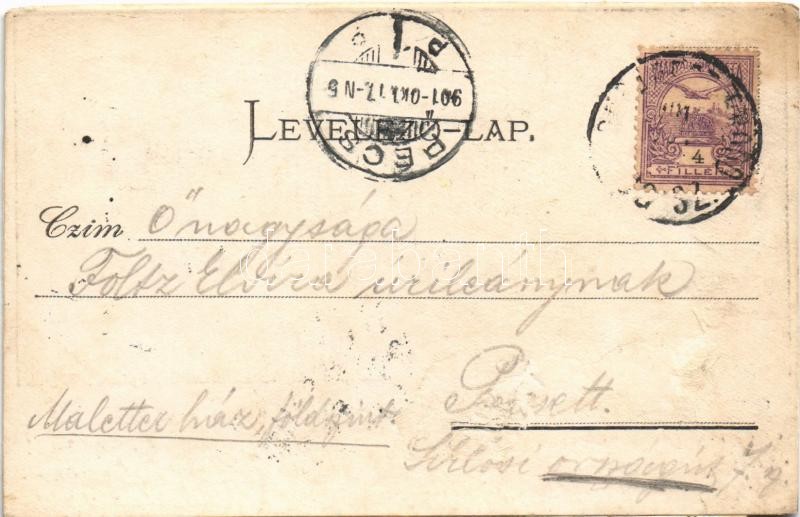 LEVELEZŐ-LAP.
PÉCS
901-OKT.17.-N5
4
FILLÉR
Czim Őnagysága
Foltz Elvira úrileánynak
Maletter ház, földszint.
Pécsett.
Siklósi országút
darabanth